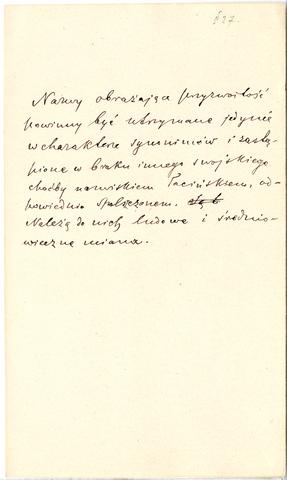 § 27.
Nazwy obrażające przyzwoitość
powinny być utrzymane jedynie
w charakterze synonimów i zastą-
pione w braku innego swojskiego
choćby nazwiskiem łacińskiem, od-
powiednio spolszczonem.
Należą do nich ludowe i średnio-
wieczne miana.